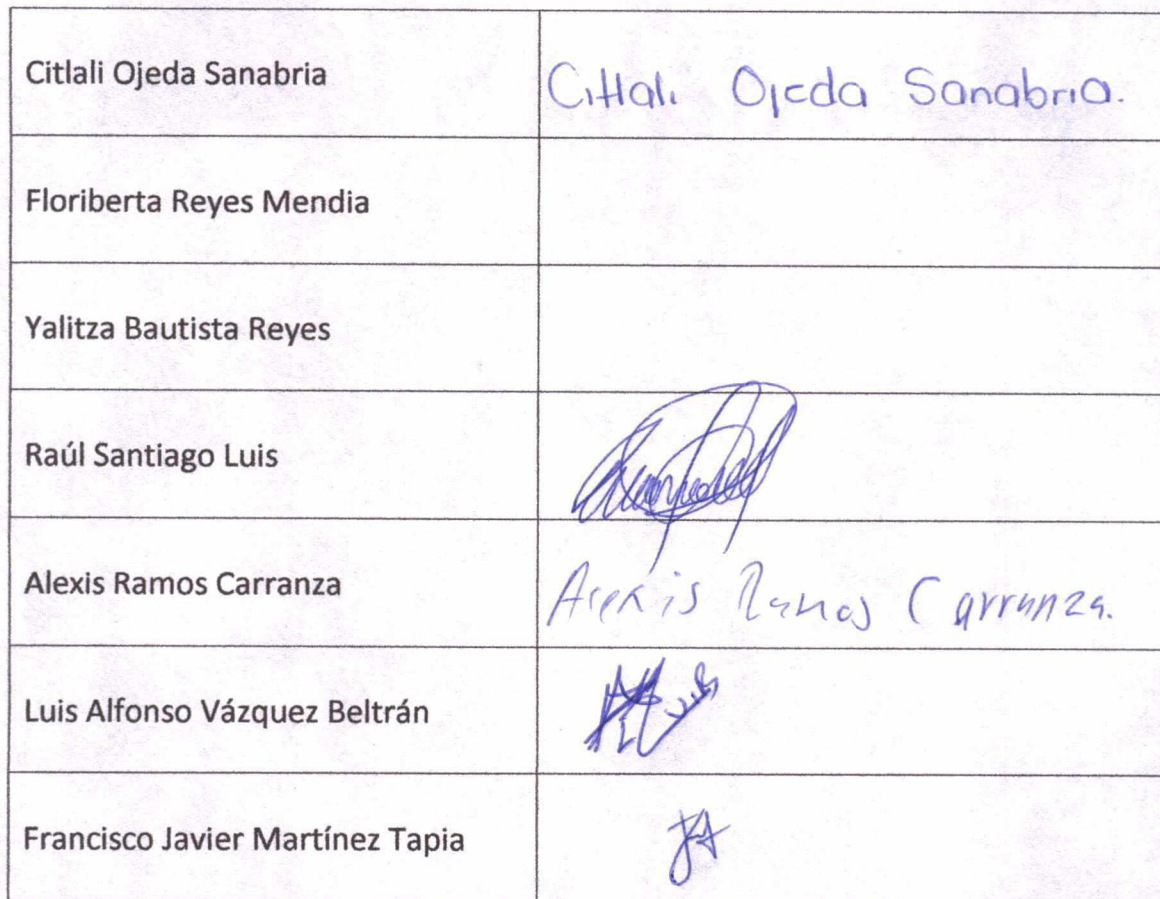 Citlali Ojeda Sanabria
Citlali Ojeda Sanabria.
Floriberta Reyes Mendia
Yalitza Bautista Reyes
Raúl Santiago Luis
Alexis Ramos Carranza
Alexis Ramos Carranza.
Luis Alfonso Vázquez Beltrán
Francisco Javier Martínez Tapia